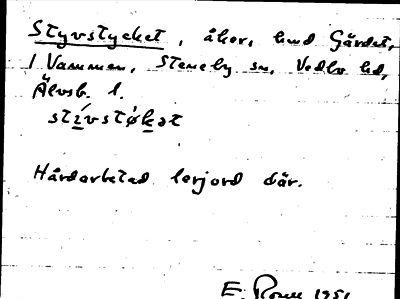 Styvstycket, åker, hmd Gärdet,
1 Vammen, Steneby sn, Vedbo hd,
Älvsb. l.
stívstøkət
Hårdarbetad lerjord där.
E. 1951